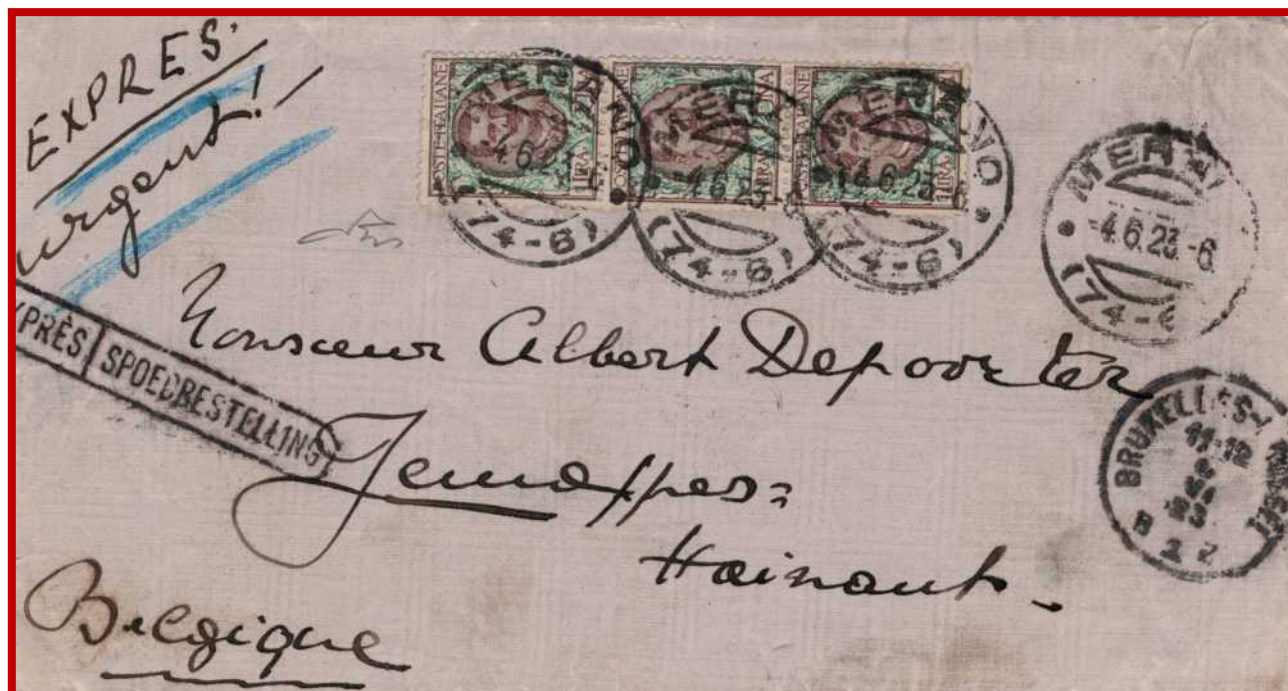 EXPRES.
urgent!
POSTE ITALIANE LIRA 1
POSTE ITALIANE LIRA 1
POSTE ITALIANE LIRA 1
MERANO
4.6.23
(74-6)
MERANO
-4.6.23
(74-6)
MERANO
-4.6.23
(74-6)
MERAN
-4.6.23.-6
(74-6
XPRÈS SPOEDBESTELLING
Monsieur Albert Depoorter
Jemappes=
Hainaut.
BRUXELLES-
11-12
B 2 Z
Belgique